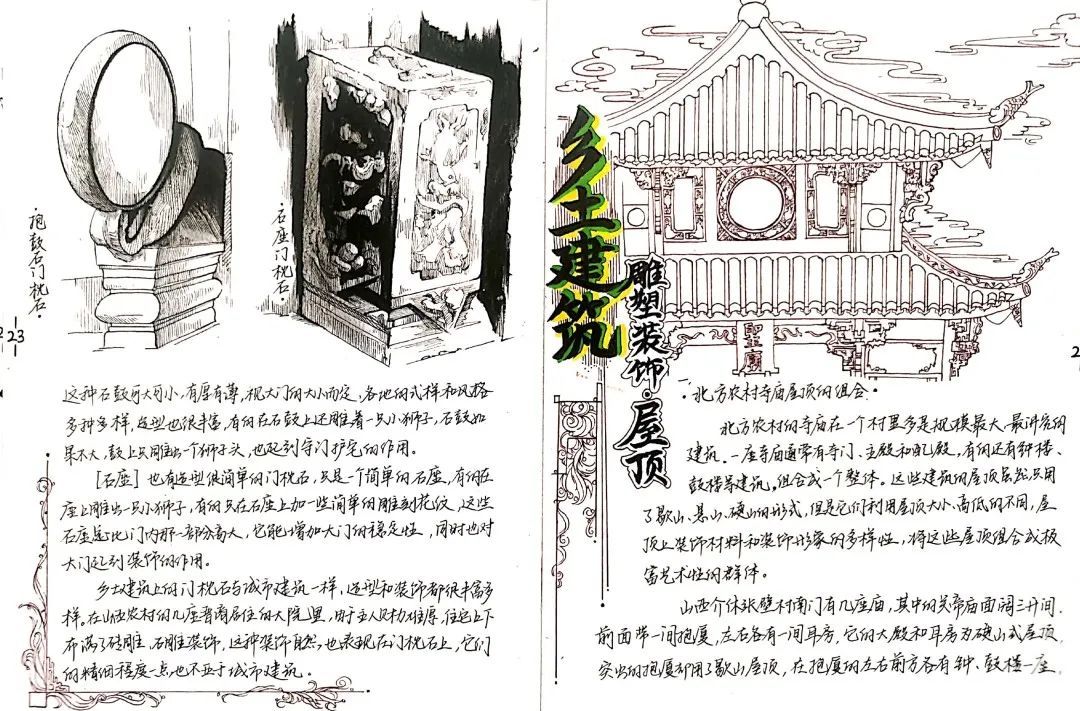 抱鼓石门枕石
石座门枕石
23
这种石鼓可大可小，有厚有薄，视大门的大小而定，各地的式样和风格
多种多样，造型也很丰富，有的在石鼓上还雕着一只小狮子，石鼓如
果不大，鼓上只雕出一个狮子头，也起到守门护宅的作用。
［石座］也有造型很简单的门枕石，只是一个简单的石座，有的在
座上雕出一只小狮子，有的只在石座上加一些简单的雕刻花纹，这些
石座总比门内那一部分高大，它能增加大门的稳定性，同时也对
大门起到装饰的作用。
乡土建筑上的门枕石与城市建筑一样，造型和装饰都很丰富多
样。在山西农村的几座晋商居住的大院里，由于主人财力雄厚，住宅上下
布满了砖雕、石雕装饰，这种装饰自然也表现在门枕石上，它们
的精细程度一点也不亚于城市建筑。
乡土建筑
雕塑装饰·屋顶
聖廟
2
一·北方农村寺庙屋顶的组合·
北方农村的寺庙在一个村里多是规模最大、最讲究的
建筑。一座寺庙通常有寺门、主殿和配殿，有的还有钟楼、
鼓楼等建筑，组合成一个整体。这些建筑的屋顶虽然只用
了歇山、悬山、硬山的形式，但是它们利用屋顶大小、高低的不同，屋
顶上装饰材料和装饰形象的多样性，将这些屋顶组合成极
富艺术性的群体。
山西介休张壁村南门有几座庙，其中的关帝庙面阔三开间，
前面带一间抱厦，左右各有一间耳房。它的大殿和耳房为硬山式屋顶，
突出的抱厦却用了歇山屋顶，在抱厦的左右前方各有钟、鼓楼一座，